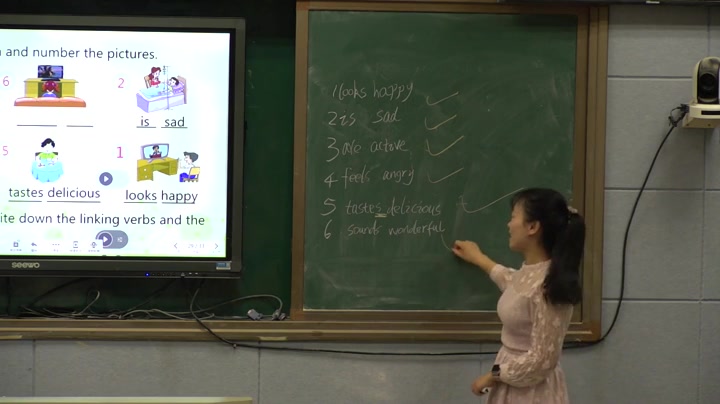 and number the pictures.
6
2
is sad
5
1
tastes delicious
looks happy
ite down the linking verbs and the
seewo
1 looks happy
2 is sad
3 are active
4 feels angry
5 tastes delicious
6 sounds wonderful